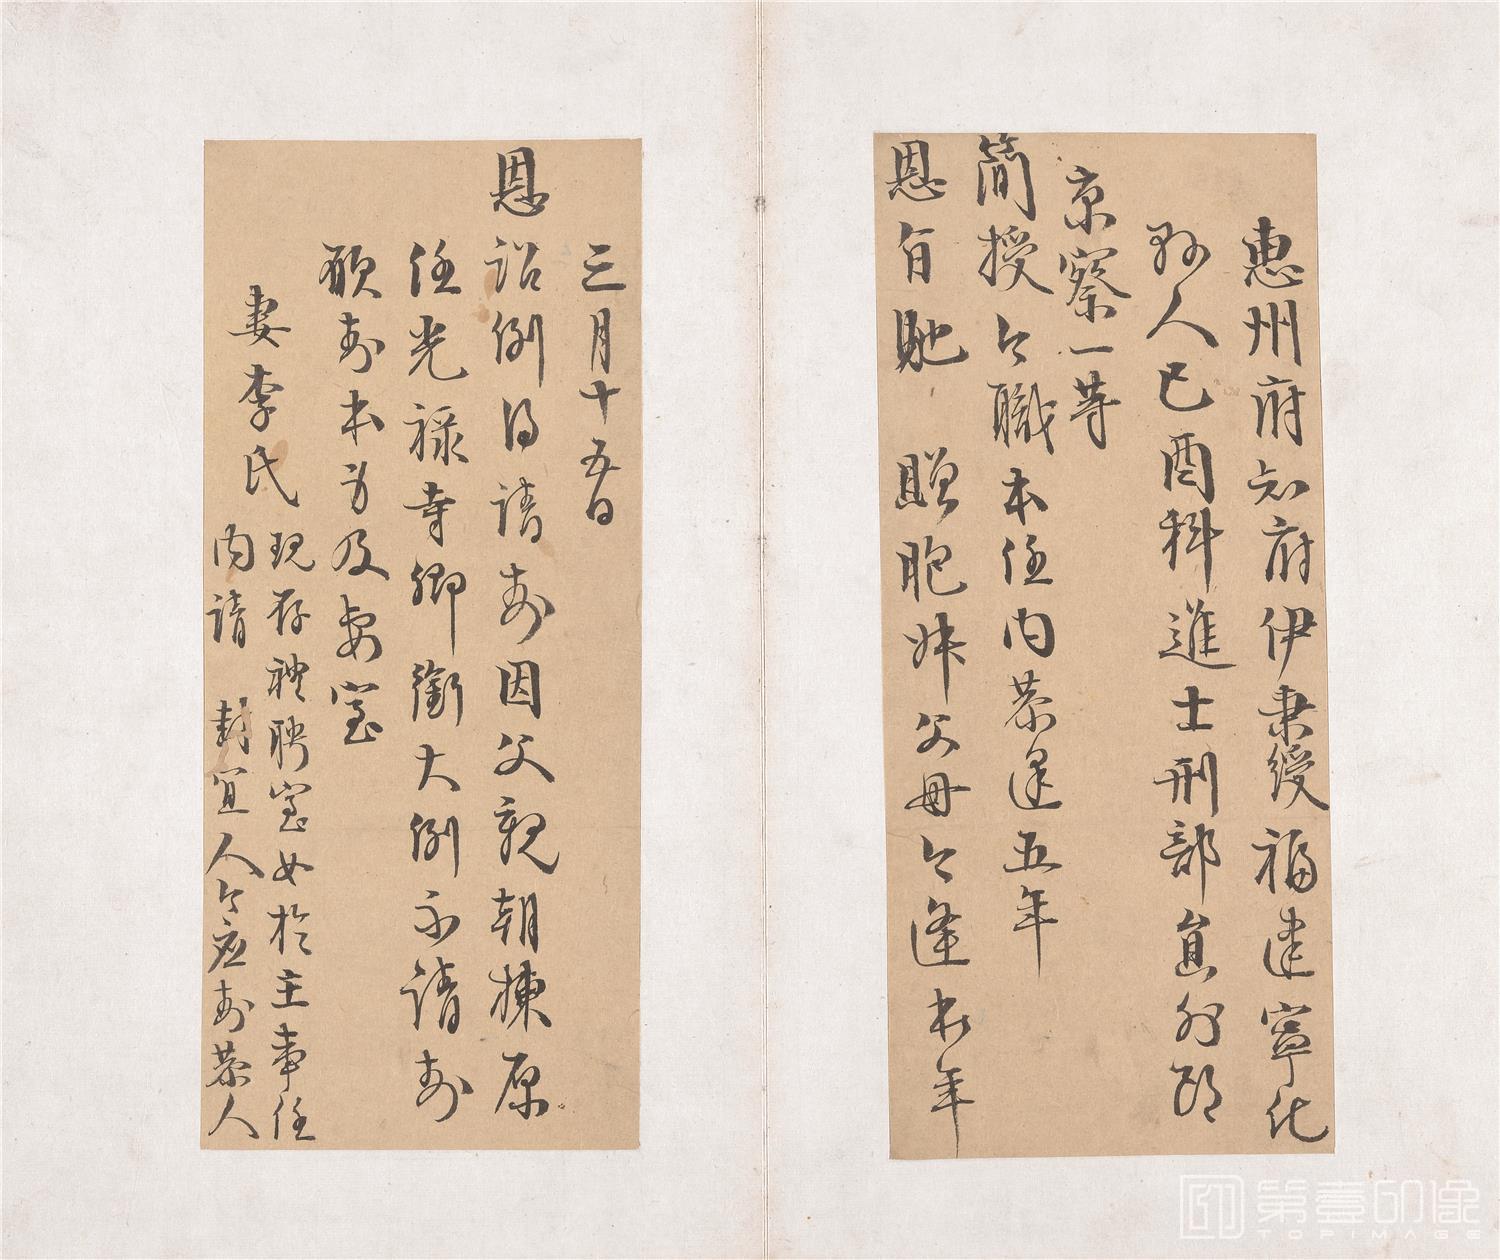 惠州府知府伊秉綬福建寧化
縣人己酉科進士刑部員外郎
京察一等
簡授今職本任內恭逢五年
恩旨貤贈胞妹父母今逢本年
三月十五日
恩詔例得請封因父親朝棟原
任光祿寺卿銜大例不請封
願封本身及妻室
妻李氏
現存禮聘室女於主事任
內請封宜人今應封恭人
第壹印像
TOPIMAGE